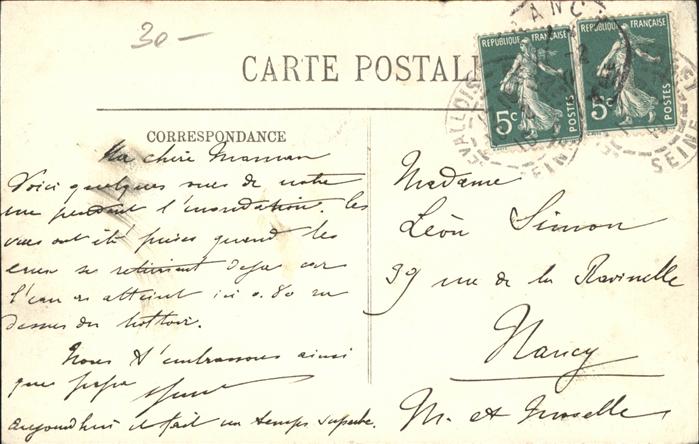 30-
CARTE POSTALE
RÉPUBLIQUE FRANÇAISE
5c
POSTES
RÉPUBLIQUE FRANÇAISE
5c
POSTES
LEVALLOIS
SEINE
CORRESPONDANCE
Ma chère Maman
Voici quelques vues de notre
rue pendant l'inondation. Les
vues ont été prises quand les
eaux se retiraient déjà car
l'eau a atteint ici 0.80 au
dessus du trottoir.
Nous t'embrassons ainsi
que papa
aujourd'hui il fait un temps superbe.
Madame
Léon Simon
39 rue de la Ravinelle
Nancy
M. et Moselle